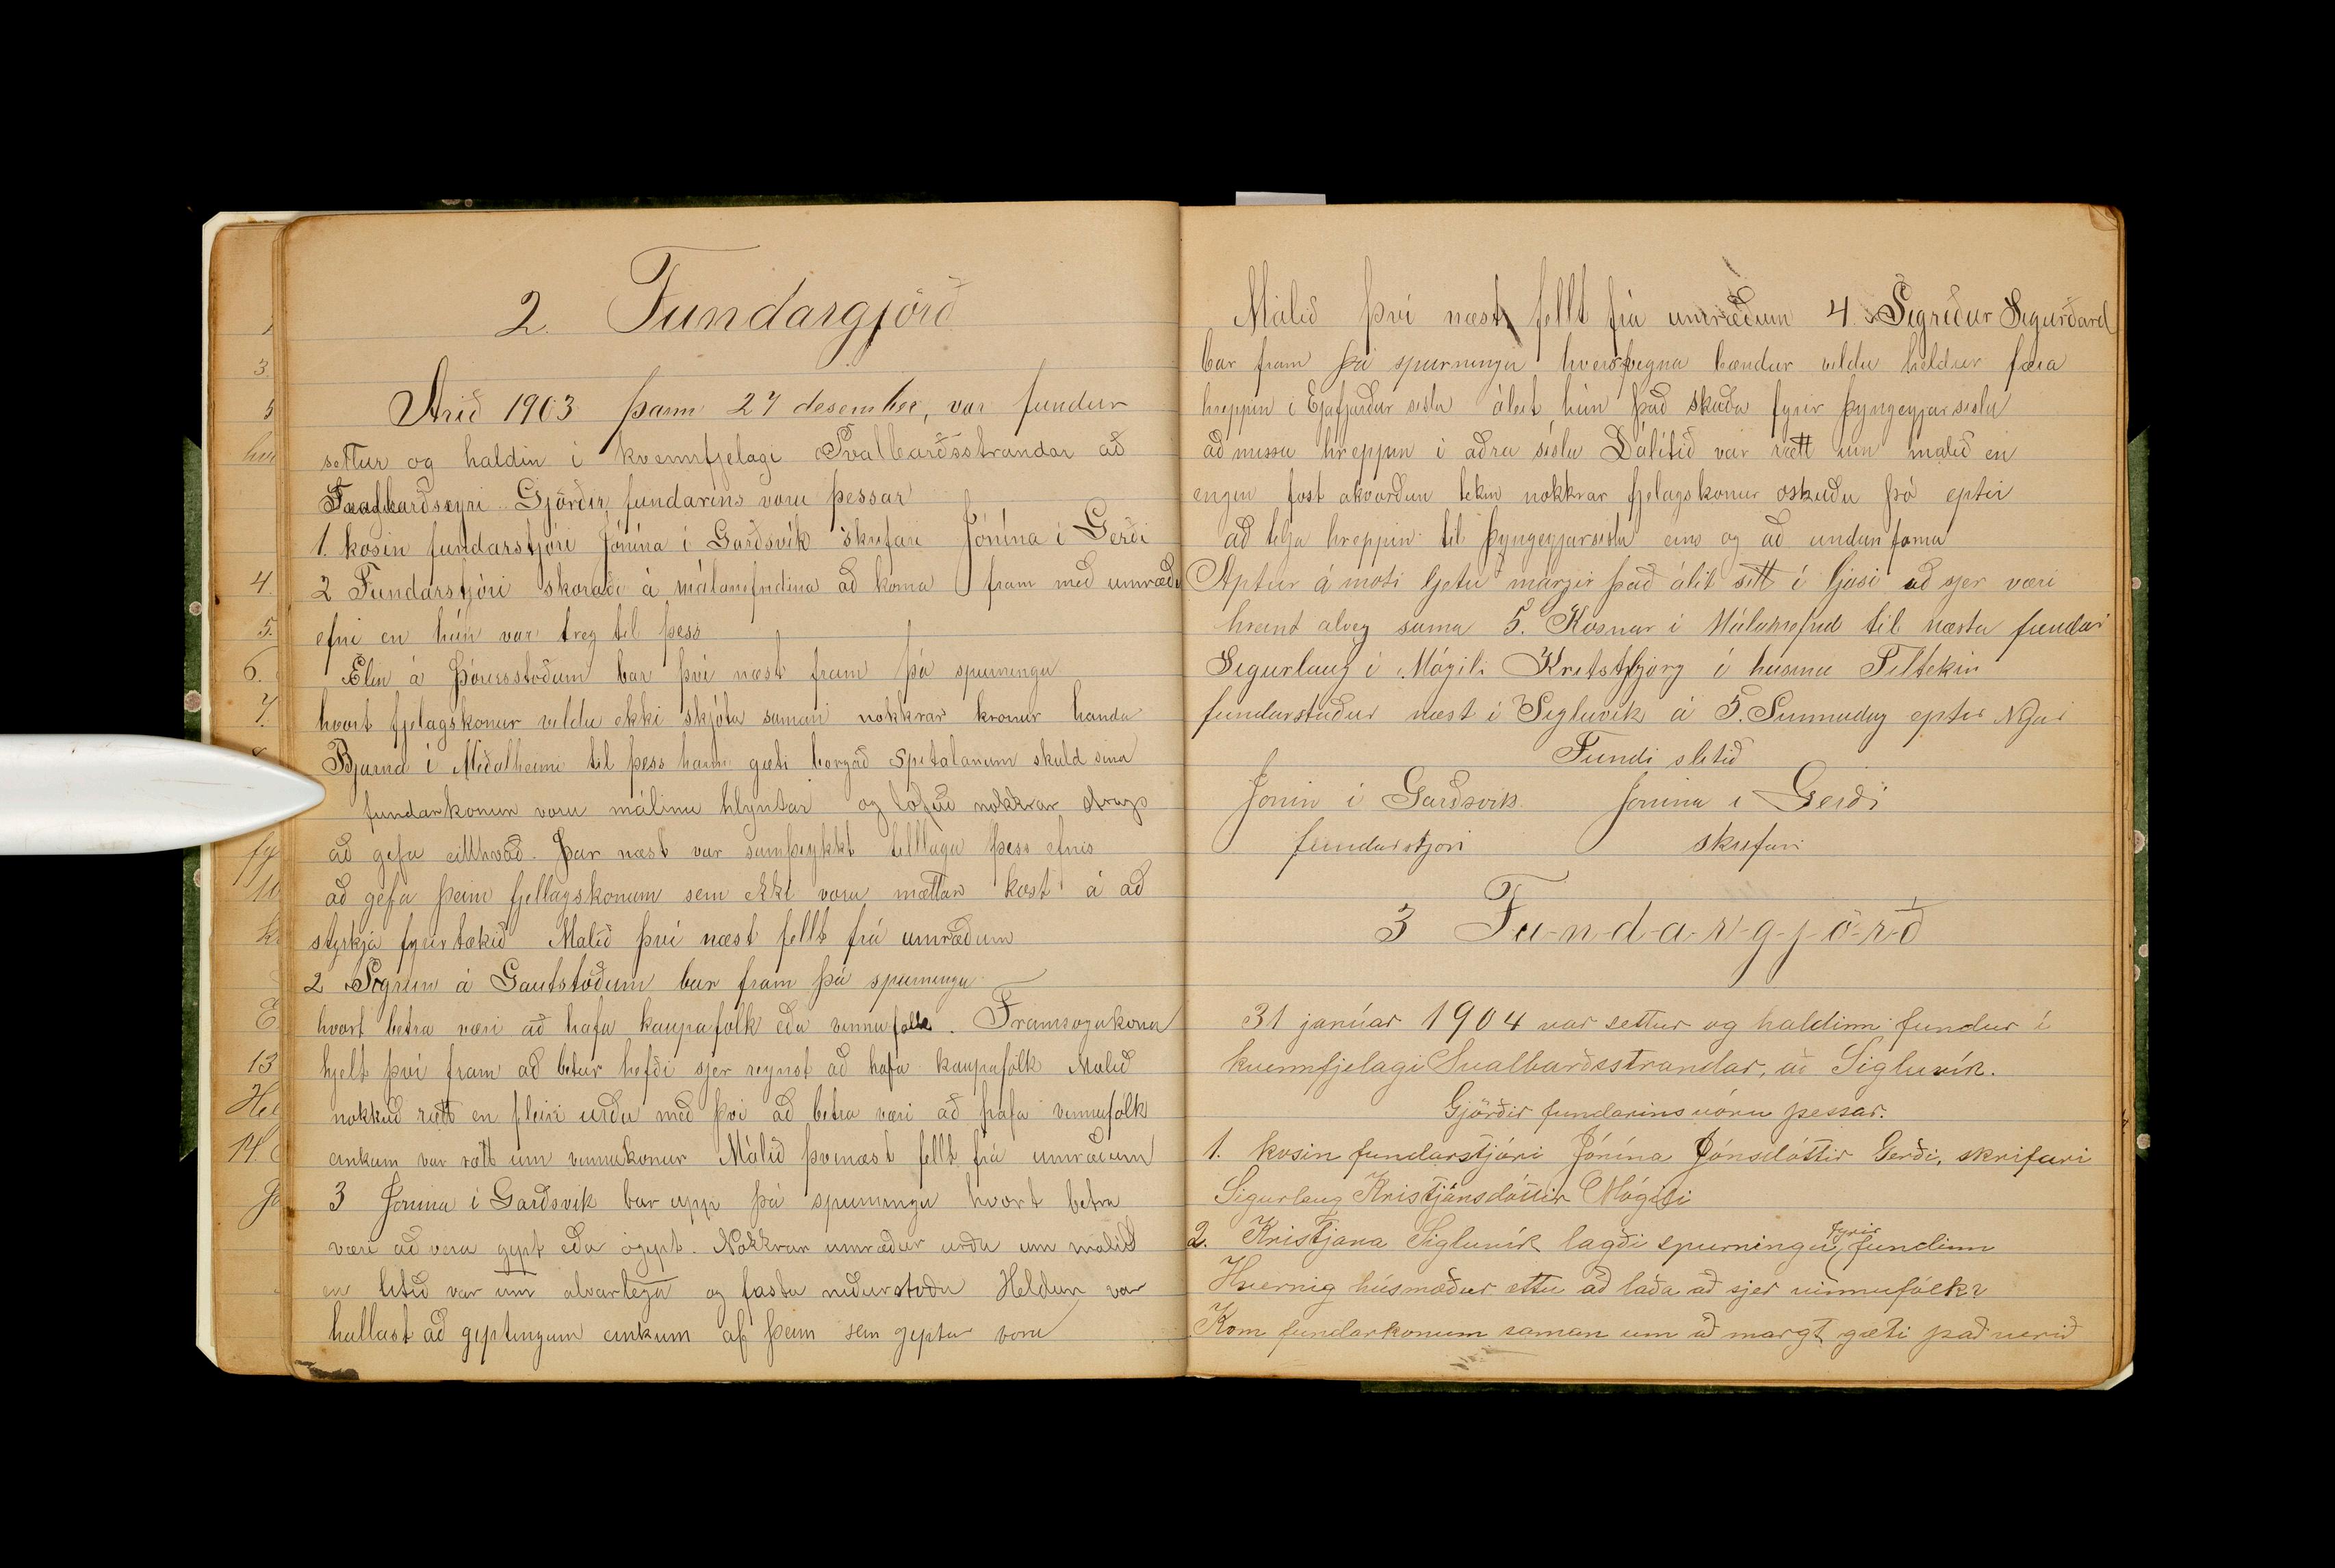 2. Fundargjörð
Árið 1903 þann 27 desember, var fundur
settur og haldin i kvennfjelagi Svalbarðsstrandar að
Svalbarðseyri. Gjörðir fundarins voru þessar
1. kosin fundarstjóri Jónína i Garðsvík skrifari Jónína i Gerði
2 Fundarstjóri skoraði á málanefndina að koma fram með umræðu
efni en hún var treg til þess
Elin á Þórisstöðum bar því næst fram þá spurningu
hvort fjelagskonur vildu ekki skjóta saman nokkrar kronur handa
Bjarna í Meðalheimi til þess hann gæti borgað spitalanum skuld sina
fundarkonur voru málinu hlyntar og lofuðu nokkrar strags
að gefa eitthvað. Þar næst var samþykkt tillaga þess efnis
að gefa þeim fjellagskonum sem ekki voru mættar kost á að
styrkja fyrirtækið Malið því næst fellt frá umræðum
2 Sigrún á Gautstöðum bar fram þá spurningu
hvort betra væri að hafa kaupafolk eða vinnufolk. Framsogukona
hjelt því fram að betur hefði sjer reynst að hafa kaupafólk Malið
nokkuð rætt en fleiri urðu með því að betra væri að hafa vinnufólk
einkum var rætt um vinnukonur Málið þvínæst fellt frá umræðum
3 Jónína i Garðsvík bar upp þá spurningu hvort betra
væri að vera gypt eða ógypt. Nokkrar umræður urðu um málið
en litið var um alvarlega og fasta niðurstöðu Heldur var
hallast að giptingum einkum af þeim sem giptar voru
Málið því næst fellt frá umræðum 4. Sigríður Sigurðard
bar fram þá spurningu hversvegna bændur vildu heldur færa
hreppin i Eyafjarðar sislu áleit hún það skaða fyrir Þyngeyjarsislu
að missa hreppin i aðra síslu Dálítið var rætt um malið en
engin föst akvörðun tekin nokkrar fjelagskonur oskuðu þó eptir
að telja hreppin til Þyngeyjarsislu eins og að undanförnu
Aptur á moti ljetu margir það álit sitt í ljósi að sjer væri
hreint alveg sama 5. Kosnar i Málanefnd til næsta fundar
Sigurlaug i Mógili Kristbjörg í húsinu Tiltekin
fundarstaður næst i Sigluvík á 5. Sunnudag eptir Nyjar
Fundi slitið
Jonin i Garðsvik Jonina i Gerði
fundarstjori skrifari
3 Fundargjörð
31 janúar 1904 var settur og haldinn fundur í
kvennfjelagi Svalbarðsstrandar, að Sigluvík.
Gjörðir fundarins vóru þessar.
1. kosin fundarstjóri Jónína Jónsdóttir Gerði, skrifari
Sigurlaug Kristjánsdóttir Mógili
2. Kristjana Sigluvík lagði spurningu fyrir fundinn
Hvernig húsmæður ættu að laða að sjer vinnufólk?
Kom fundarkonum saman um að margt gæti það verið